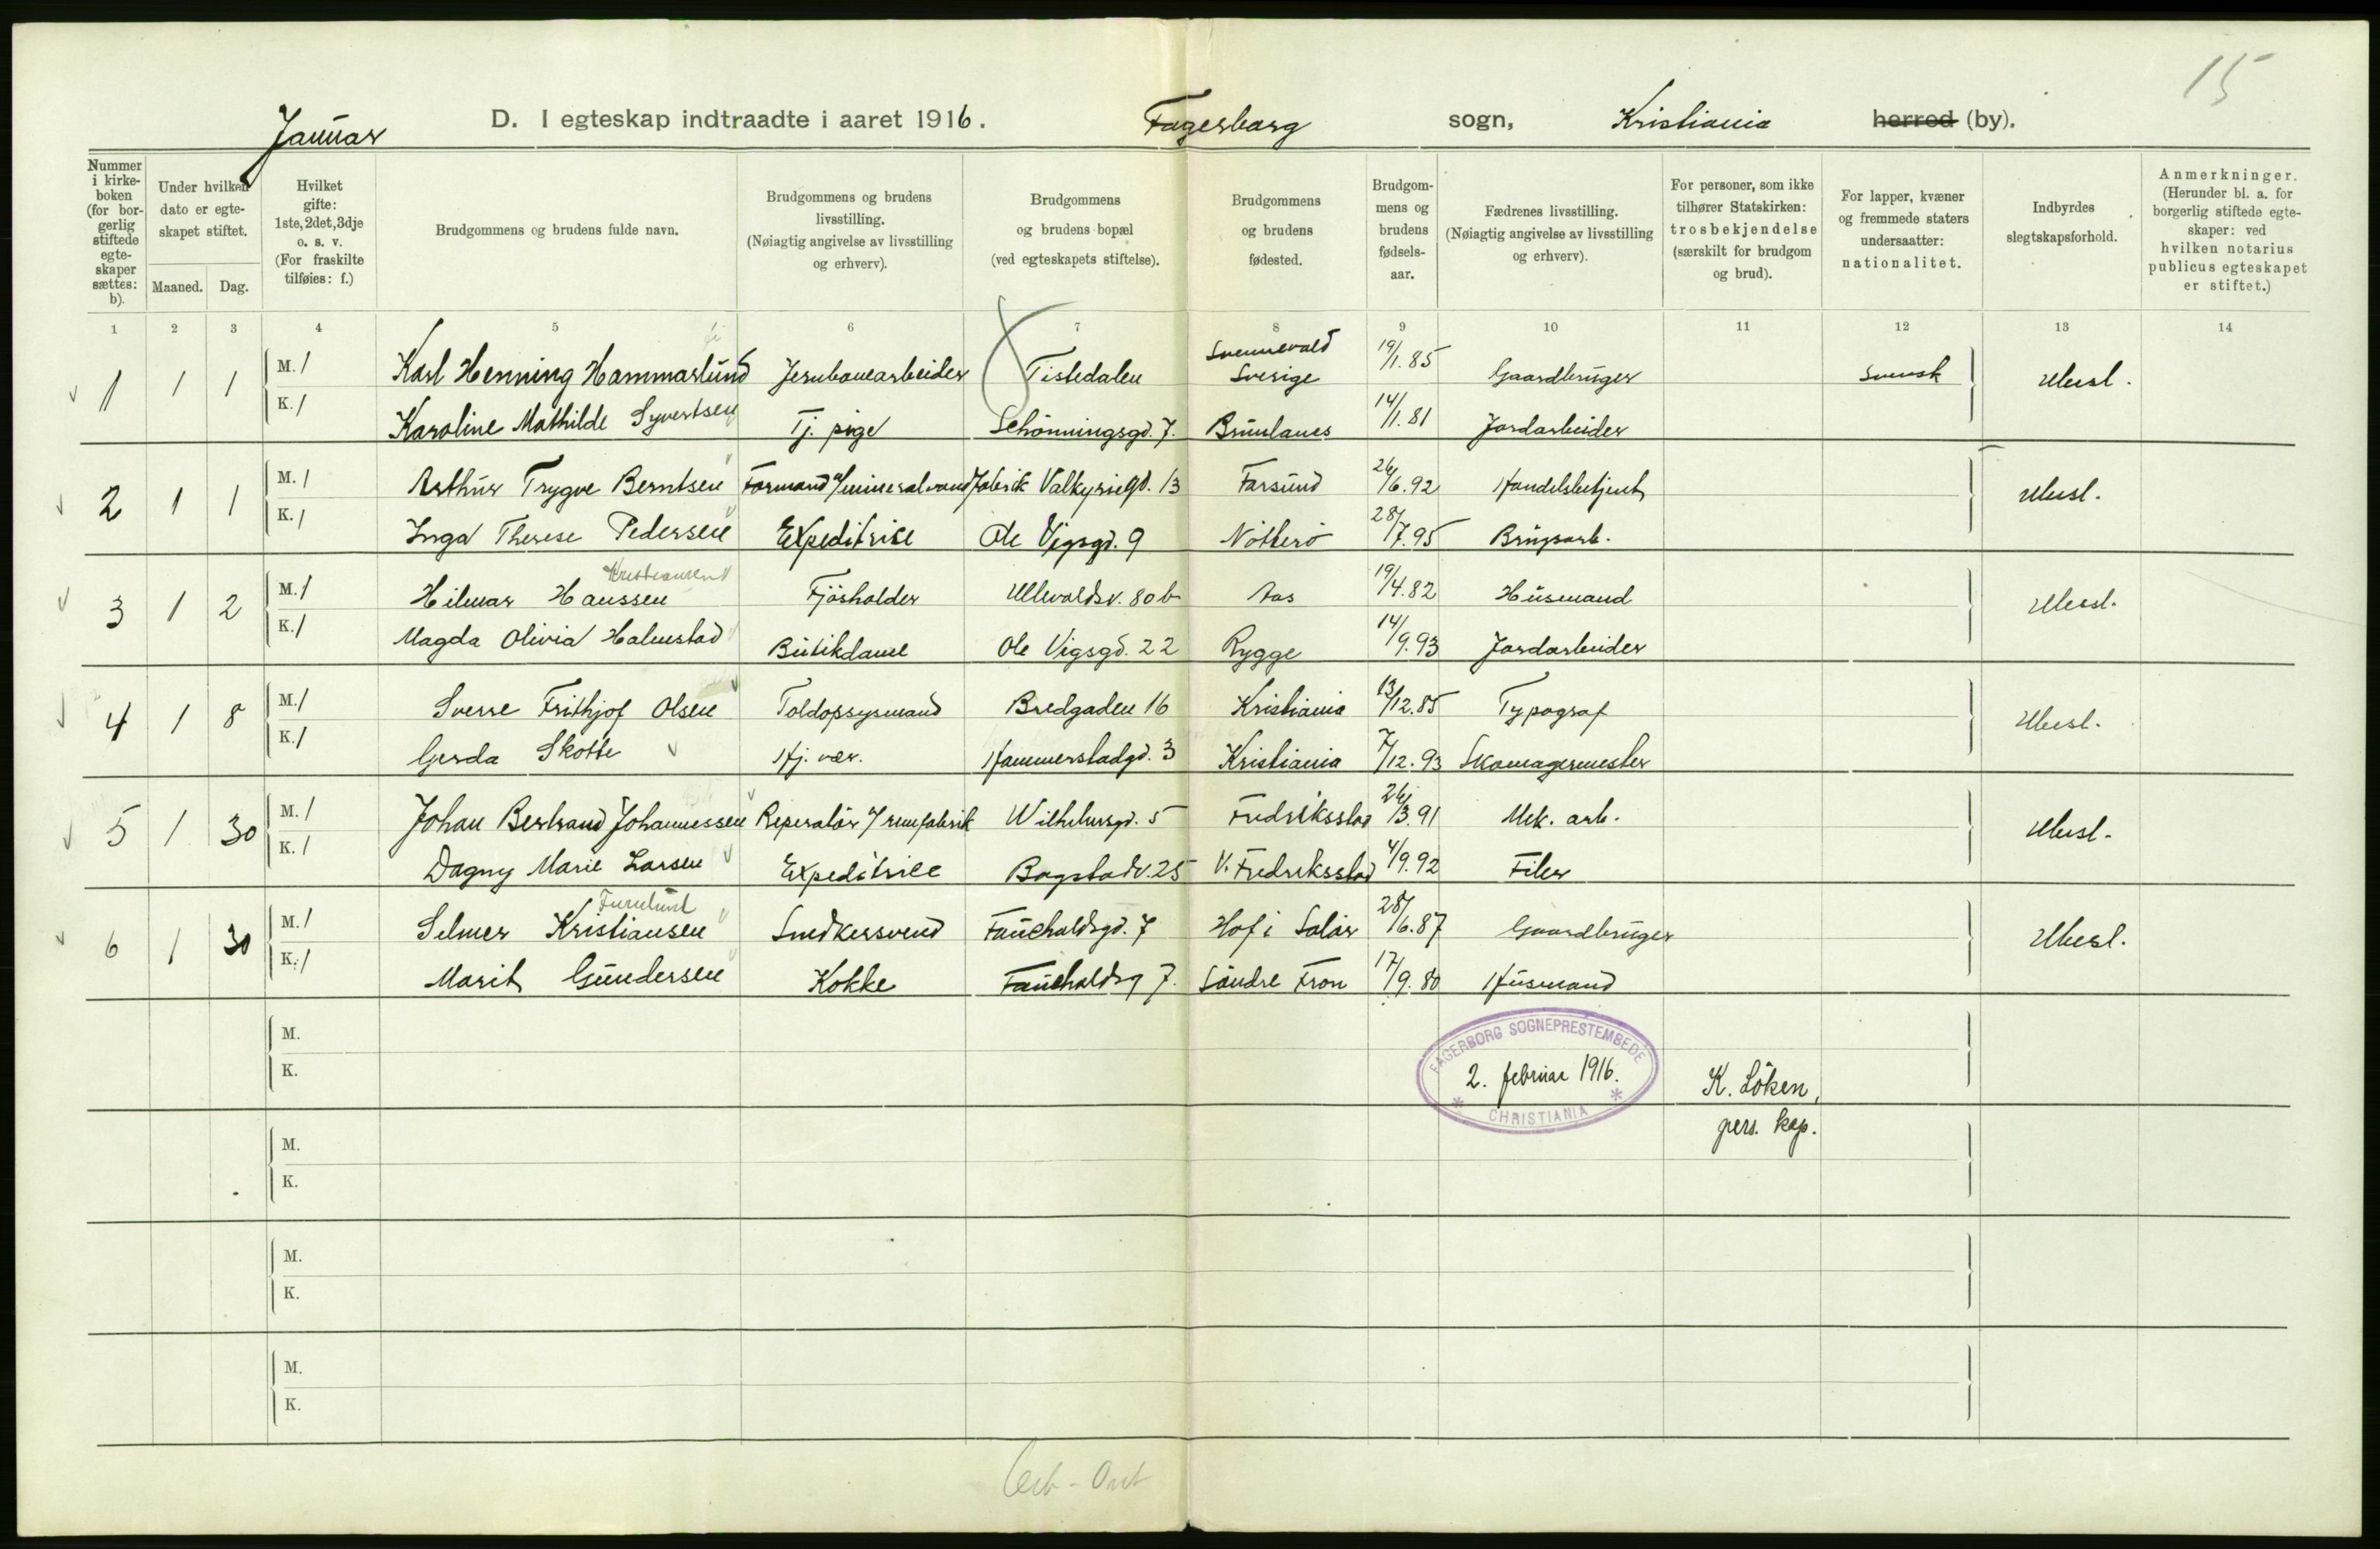 15
Januar D. I egteskap indtraadte i aaret 1916. Fagerborg sogn, Kristiania herred (by).
Nummer i kirke-boken (for bor-gerlig stiftede egte-skaper sættes: b).
Under hvilken dato er egte-skapet stiftet.
Maaned. Dag.
Hvilket gifte: 1ste, 2det, 3dje o. s. v. (For fraskilte tilføies: f.)
Brudgommens og brudens fulde navn.
Brudgommens og brudens livsstilling. (Nøiagtig angivelse av livsstilling og erhverv).
Brudgommens og brudens bopæl (ved egteskapets stiftelse).
Brudgommens og brudens fødested.
Brudgom-mens og brudens fødsels-aar.
Fædrenes livsstilling. (Nøiagtig angivelse av livsstilling og erhverv).
For personer, som ikke tilhører Statskirken: trosbekjendelse (særskilt for brudgom og brud).
For lapper, kvæner og fremmede staters undersaatter: nationalitet.
Indbyrdes slegtskapsforhold.
Anmerkninger. (Herunder bl. a. for borgerlig stiftede egte-skaper: ved hvilken notarius publicus egteskapet er stiftet.)
1 2 3 4 5 6 7 8 9 10 11 12 13 14
1 1 1 M. 1 Karl Henning Hammarlund Jernbanearbeider Tistedalen Svennevald Sverige 19/1.85 Gaardbruger Svensk Ubesl.
K. 1 Karoline Mathilde Syvertsen Tj. pige Schönningsgd. 7. Brunlanes 14/1.81 Jordarbeider
2 1 1 M. 1 Arthur Trygve Berntsen Formand v/mineralvandfabrik Valkyriegd. 13 Farsund 26/6.92 Handelsbetjent Ubesl.
K. 1 Inga Therese Pedersen Expeditrise Ole Vigsgd. 9 Nötterö 28/7.95 Brugsarb.
3 1 2 M. 1 Hilmar Hanssen Kristiansen Fjösholder Ullevoldsv. 80 b Aas 19/4.82 Husmand Ubesl.
K. 1 Magda Olivia Halmstad Butikdame Ole Vigsgd. 22 Rygge 14/9.93 Jordarbeider
4 1 8 M. 1 Sverre Frithjof Olsen Toldopsynsmand Bredgaden 16 Kristiania 13/12.85 Typograf Ubesl.
K. 1 Gerda Skotte Hj. vær. Hammerstadgd. 3 Kristiania 7/12.93 Skomagermester
5 1 30 M. 1 Johan Bertrand Johannessen Reperatör v/remfabrik Wilhelmsgd. 5 Fredriksstad 26/3.91 Mek. arb. Ubesl.
K. 1 Dagny Marie Larsen Expeditrice Bogstadv. 25 V. Fredriksstad 4/9.92 Filer
6 1 30 M. 1 Selmer Kristiansen Furulund Snedkersvend Fauchaldsgd. 7 Hof i Solör 28/6.87 Gaardbruger Ubesl.
K. 1 Marit Gundersen Kokke Fauchaldsg 7. Söndre Fron 17/9.80 Husmand
M.
K.
FAGERBORG SOGNEPRESTEMBEDE
2. februar 1916.
* CHRISTIANIA *
K. Löken,
pers. kap.
M.
K.
M.
K.
M.
K.